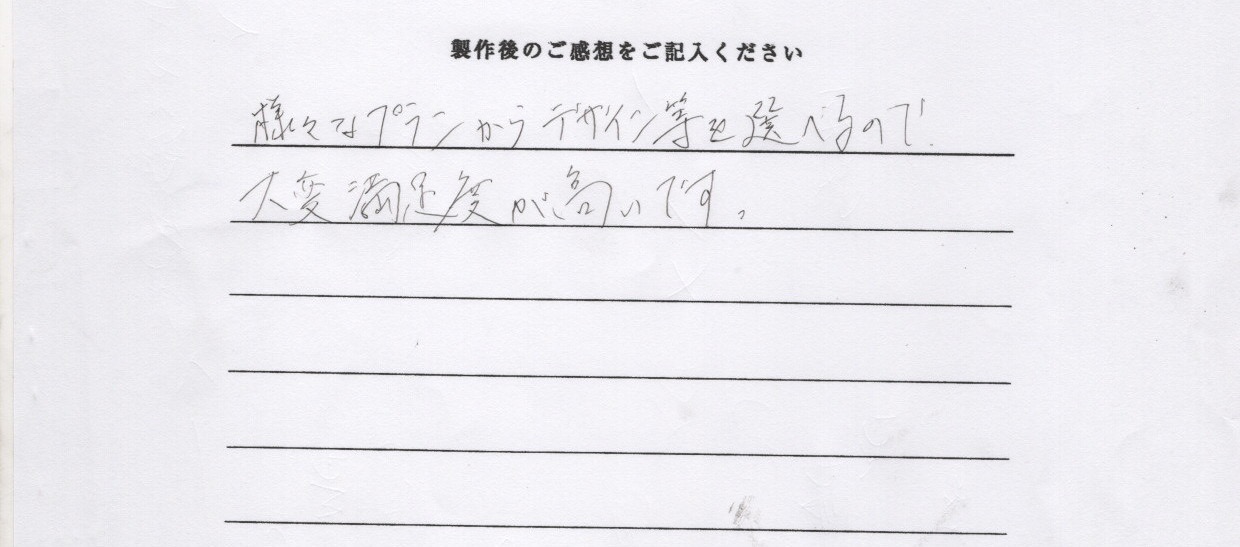 製作後のご感想をご記入ください
様々なプランからデザイン等を選べるので、
大変満足度が高いです。